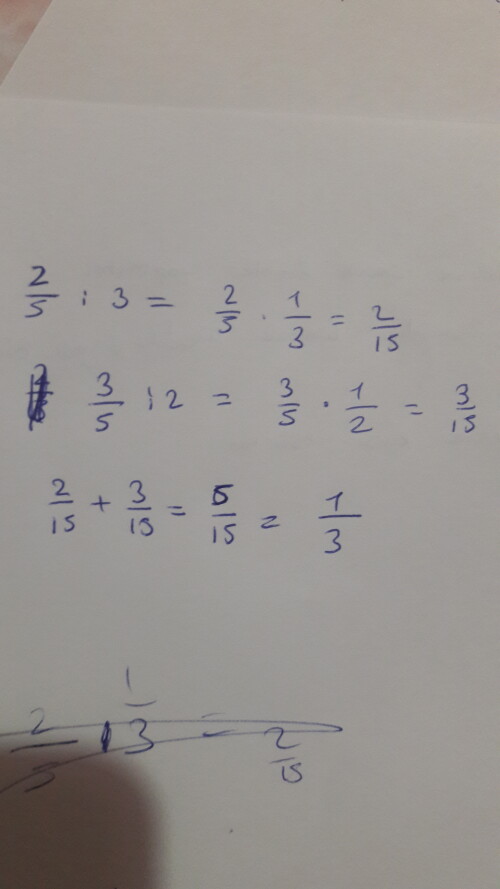 2/5 : 3 = 2/5 · 1/3 = 2/15
3/5 : 2 = 3/5 · 1/2 = 3/15
2/15 + 3/15 = 5/15 = 1/3
2/5 · 1/3 = 2/15